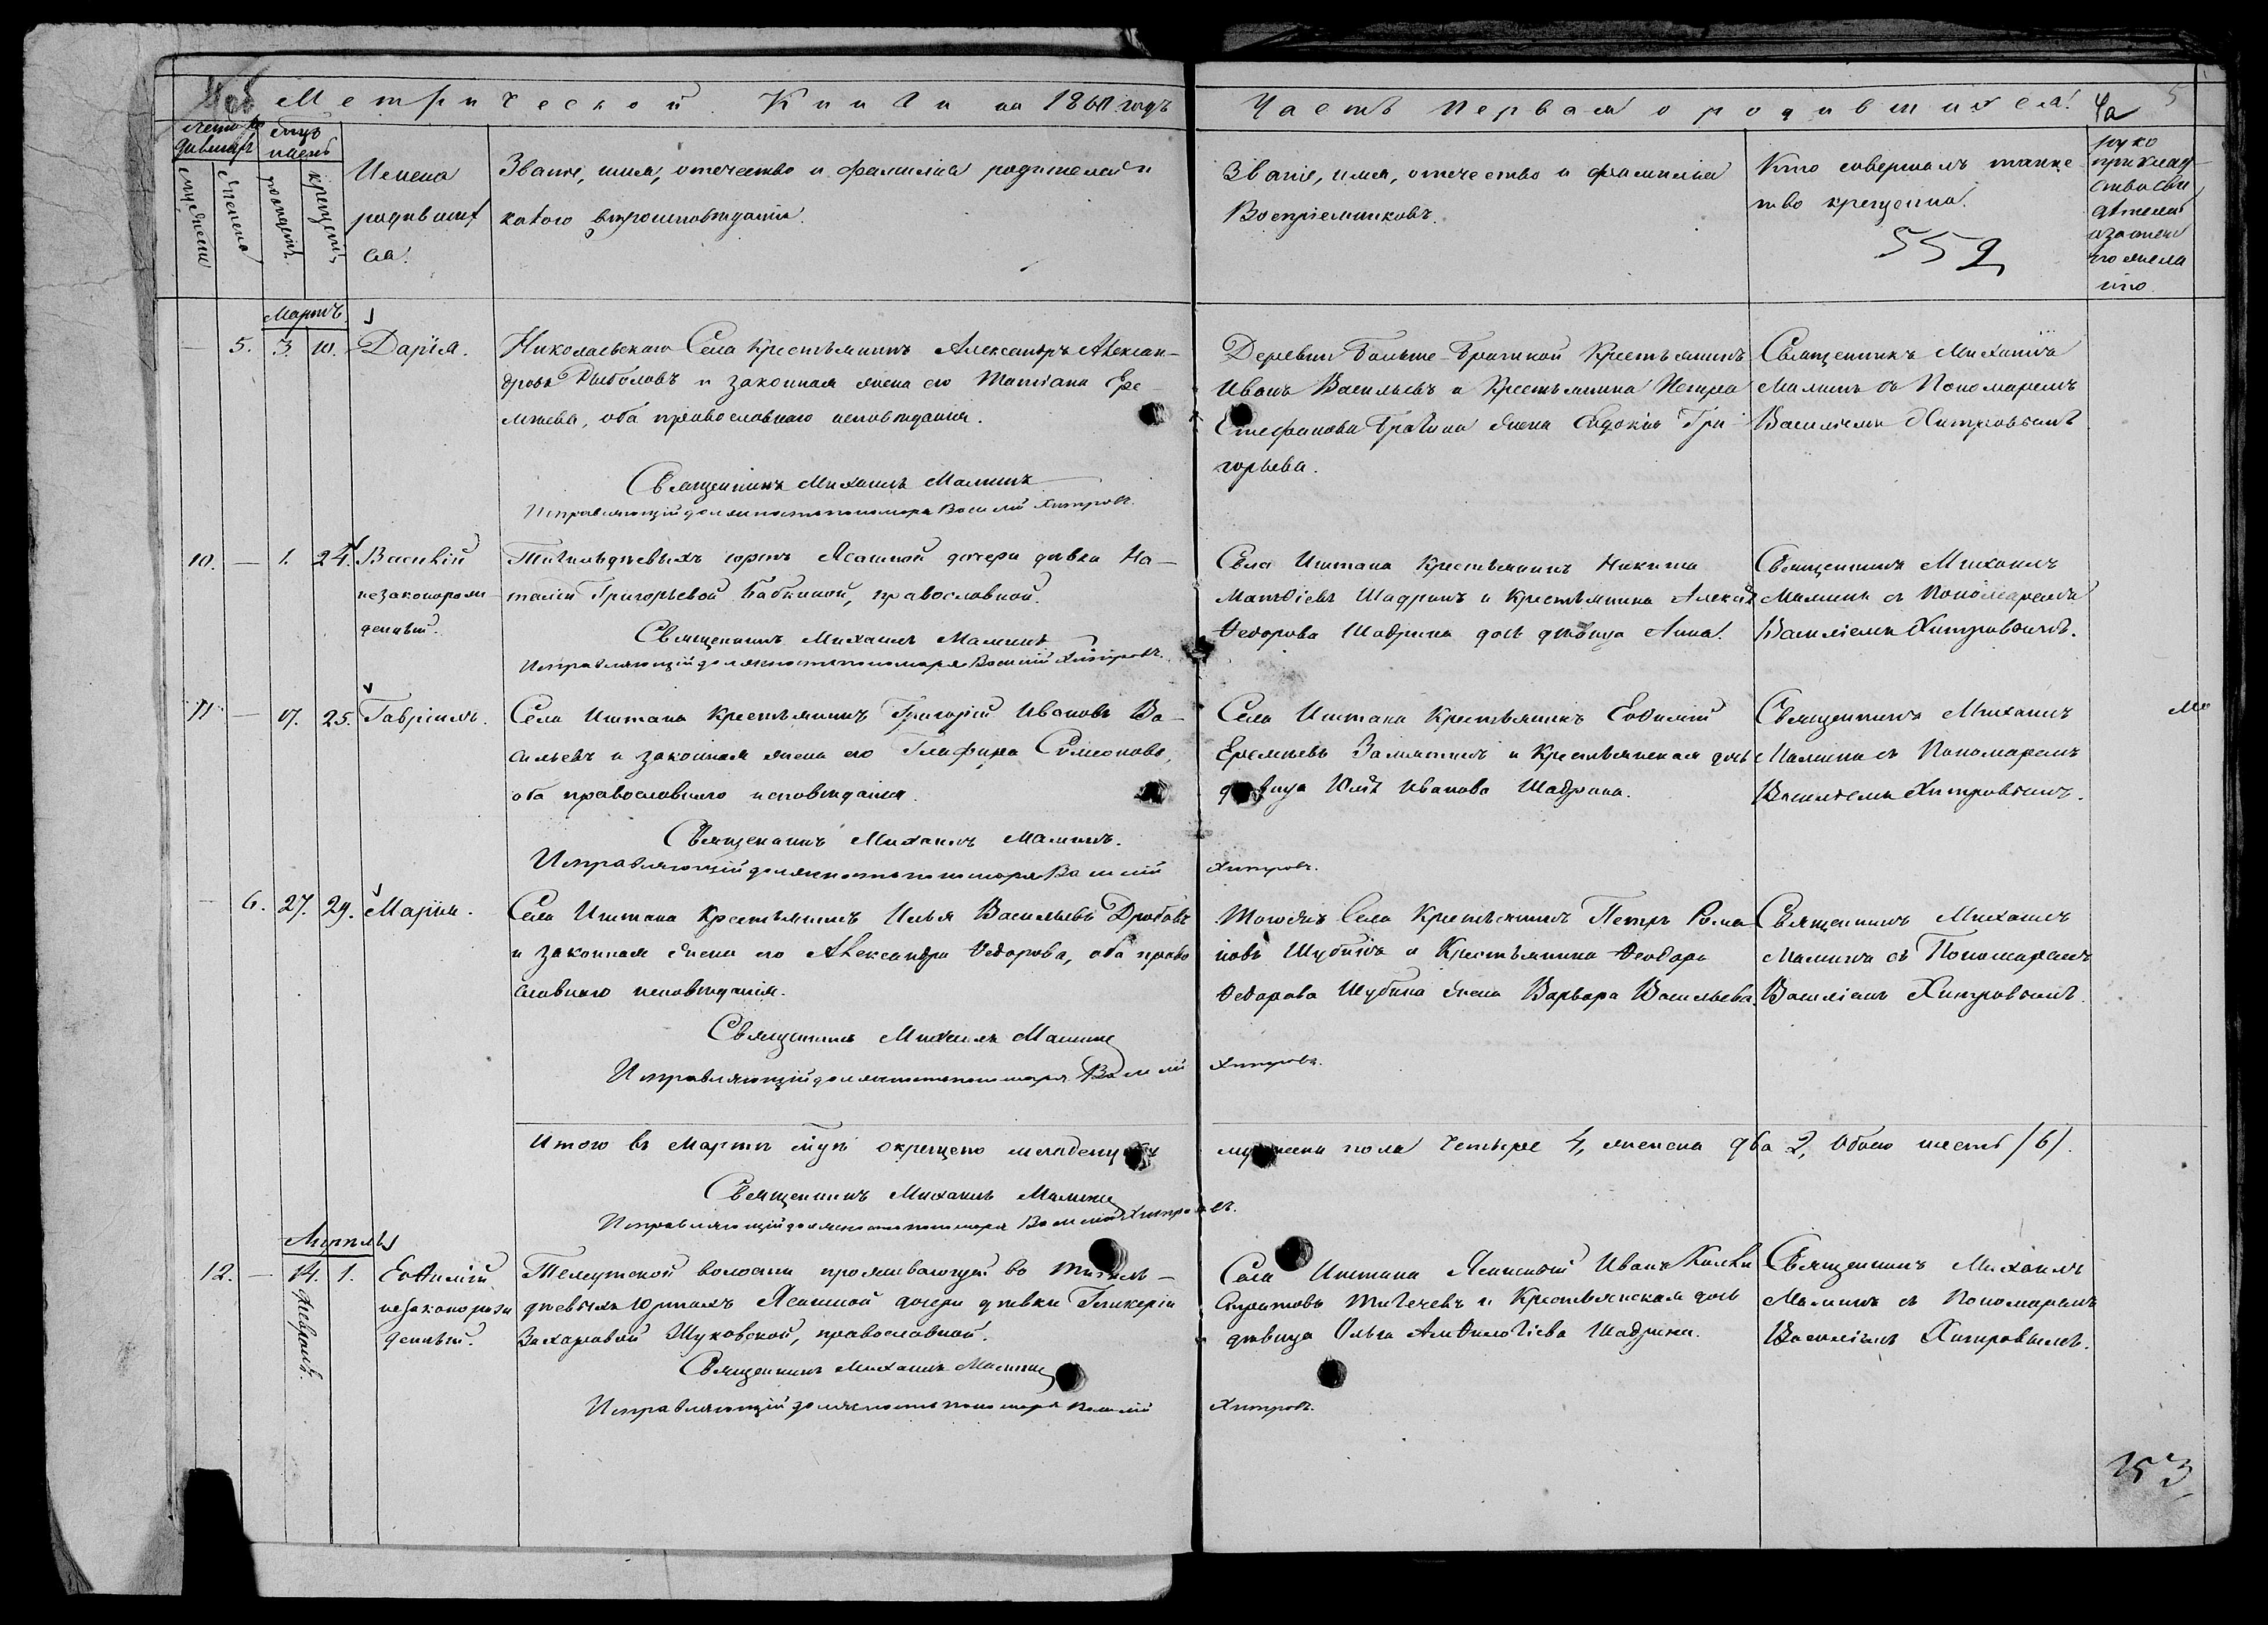 Метрической Книги на 1860 годъ
Часть первая о родившихся.
4а
5
Мѣсяцъ и день
рожденія
крещенія
мужеска
женска
Имена
родивших
ся.
Званіе, имя, отечество и фамилія родителей и
какого вѣроисповѣданія.
Званіе, имя, отечество и фамилія
Воспріемниковъ.
Кто совершалъ таинс
тво крещенія.
552
руко
приклад
ство сви
дѣтелей
Мартъ
5. 3. 10. Дарія.
Николаевскаго Села Крестьянинъ Александръ Алексан-
дровъ Рыболовъ и законная жена его Татіана Ере-
мѣева, оба православнаго исповѣданія.
Священникъ Михаилъ Малинъ
Исправляющій должность пономаря Василій Хитровъ.
Деревни Больше-Брагиной Крестьянинъ
Иванъ Васильевъ и Крестьянина Петра
Стефанова Брагина жена Евдокія Гри-
горьева.
Священникъ Михаилъ
Малинъ съ Пономаремъ
Василіемъ Хитровымъ
10. — 1. 24. Василій
незаконорож-
денный.
Тигильдѣевыхъ юртъ Ясашной дочери дѣвки На-
таліи Григорьевой Бабкиной, православной.
Священникъ Михаилъ Малинъ
Исправляющій должность пономаря Василій Хитровъ.
Села Иштана Крестьянинъ Никита
Матѳіевъ Шадринъ и Крестьянина Алексѣя
Ѳедорова Шадрина дочь дѣвица Анна.
Священникъ Михаилъ
Малинъ съ Пономаремъ
Василіемъ Хитровымъ.
11 — 17. 25. Гавріилъ.
Села Иштана Крестьянинъ Григорій Ивановъ Ва-
сильевъ и законная жена его Глафира Симеонова,
оба православнаго исповѣданія.
Священникъ Михаилъ Малинъ.
Исправляющій должность пономаря Василій Хитровъ.
Села Иштана Крестьянинъ Евѳимій
Еремѣевъ Замятинъ и Крестьянская дочь
дѣвица Юлія Иванова Шадрина.
Священникъ Михаилъ
Малинъ съ Пономаремъ
Василіемъ Хитровымъ.
6. 27. 29. Марія.
Села Иштана Крестьянинъ Илья Васильевъ Дробовъ
и законная жена его Александра Ѳедорова, оба право
славнаго исповѣданія.
Священникъ Михаилъ Малинъ
Исправляющій должность пономаря Василій Хитровъ.
Тогоже Села Крестьянинъ Петръ Рома
новъ Шубинъ и Крестьянина Ѳеодора
Ѳедорова Шубина жена Варвара Васильева.
Священникъ Михаилъ
Малинъ съ Пономаремъ
Василіемъ Хитровымъ.
Итого въ Мартѣ м-цѣ окрещено младенцевъ мужеска пола четыре 4, женска два 2, обоего шесть (6).
Священникъ Михаилъ Малинъ
Исправляющій должность пономаря Василій Хитровъ.
Апрѣль
12. — 14. 1. Евѳимій
Февраль.
незаконорож
денный.
Темутской волости проживающей въ Тигиль-
дѣевыхъ Юртахъ Ясашной дочери дѣвки Гликеріи
Захаровой Шуковской, православной.
Священникъ Михаилъ Малинъ
Исправляющій должность пономаря Василій Хитровъ.
Села Иштана Ясашный Иванъ
Тигечевъ и Крестьянская дочь
дѣвица Ольга Амѳилохіева Шадрина.
Священникъ Михаилъ
Малинъ съ Пономаремъ
Василіемъ Хитровымъ.
153